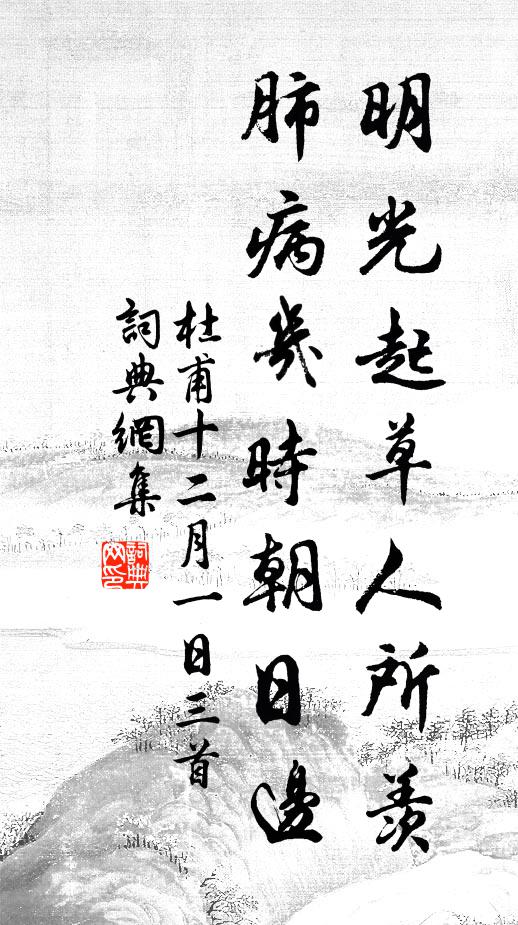 明光起草人所羨
肺病幾時朝日邊
杜甫十二月一日三首
詞典網集
詞典網印